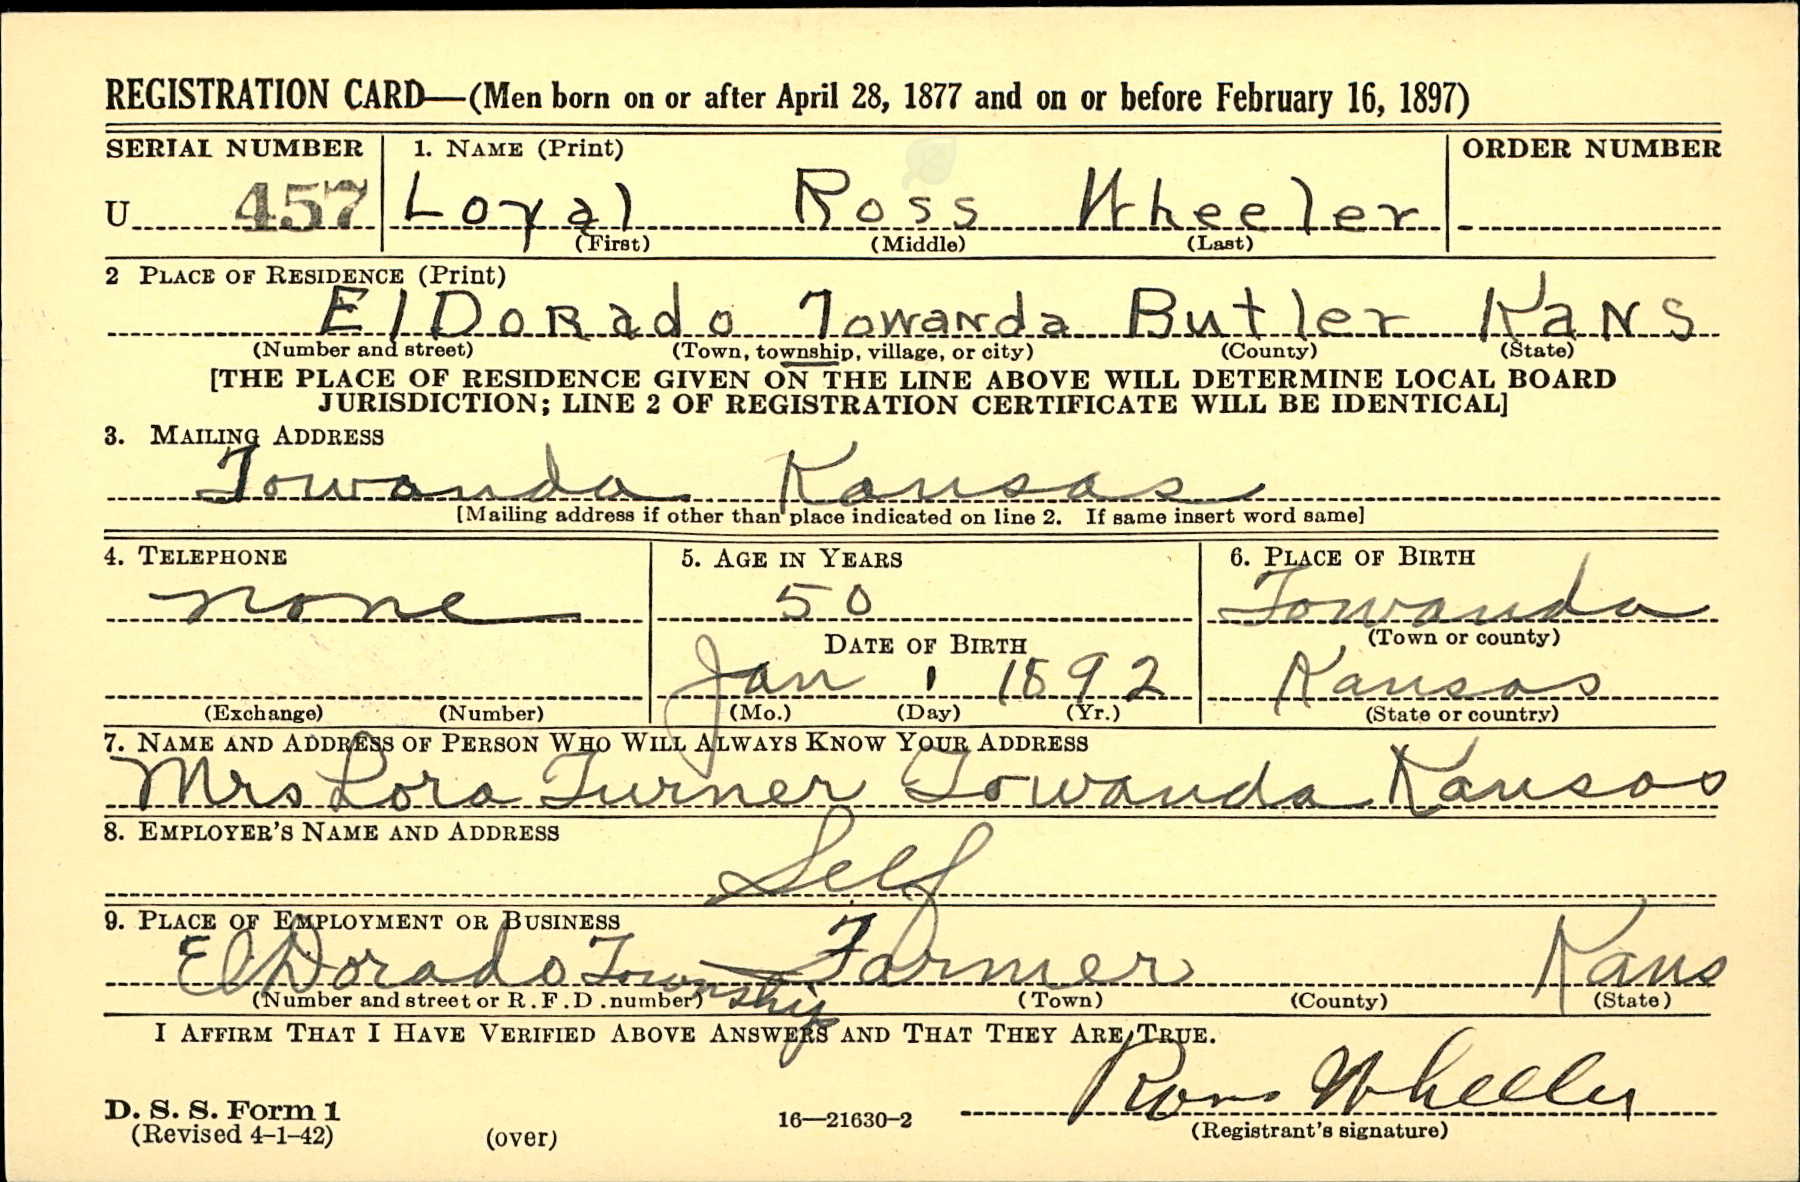 REGISTRATION CARD—(Men born on or after April 28, 1877 and on or before February 16, 1897)
SERIAL NUMBER 1. NAME (Print) ORDER NUMBER
U 457 Loyal Ross Wheeler
(First) (Middle) (Last)
2 PLACE OF RESIDENCE (Print)
ElDorado Towanda Butler Kans
(Number and street) (Town, township, village, or city) (County) (State)
[THE PLACE OF RESIDENCE GIVEN ON THE LINE ABOVE WILL DETERMINE LOCAL BOARD
JURISDICTION; LINE 2 OF REGISTRATION CERTIFICATE WILL BE IDENTICAL]
3. MAILING ADDRESS
Towanda Kansas
[Mailing address if other than place indicated on line 2. If same insert word same]
4. TELEPHONE 5. AGE IN YEARS 6. PLACE OF BIRTH
none 50 Towanda
DATE OF BIRTH (Town or county)
Jan 1 1892 Kansas
(Exchange) (Number) (Mo.) (Day) (Yr.) (State or country)
7. NAME AND ADDRESS OF PERSON WHO WILL ALWAYS KNOW YOUR ADDRESS
Mrs Lora Turner Towanda Kansas
8. EMPLOYER'S NAME AND ADDRESS
Self
9. PLACE OF EMPLOYMENT OR BUSINESS
ElDorado Township Farmer Kans
(Number and street or R.F.D. number) (Town) (County) (State)
I AFFIRM THAT I HAVE VERIFIED ABOVE ANSWERS AND THAT THEY ARE TRUE.
Ross Wheeler
D. S. S. Form 1
(Revised 4-1-42) (over) 16—21630-2 (Registrant's signature)